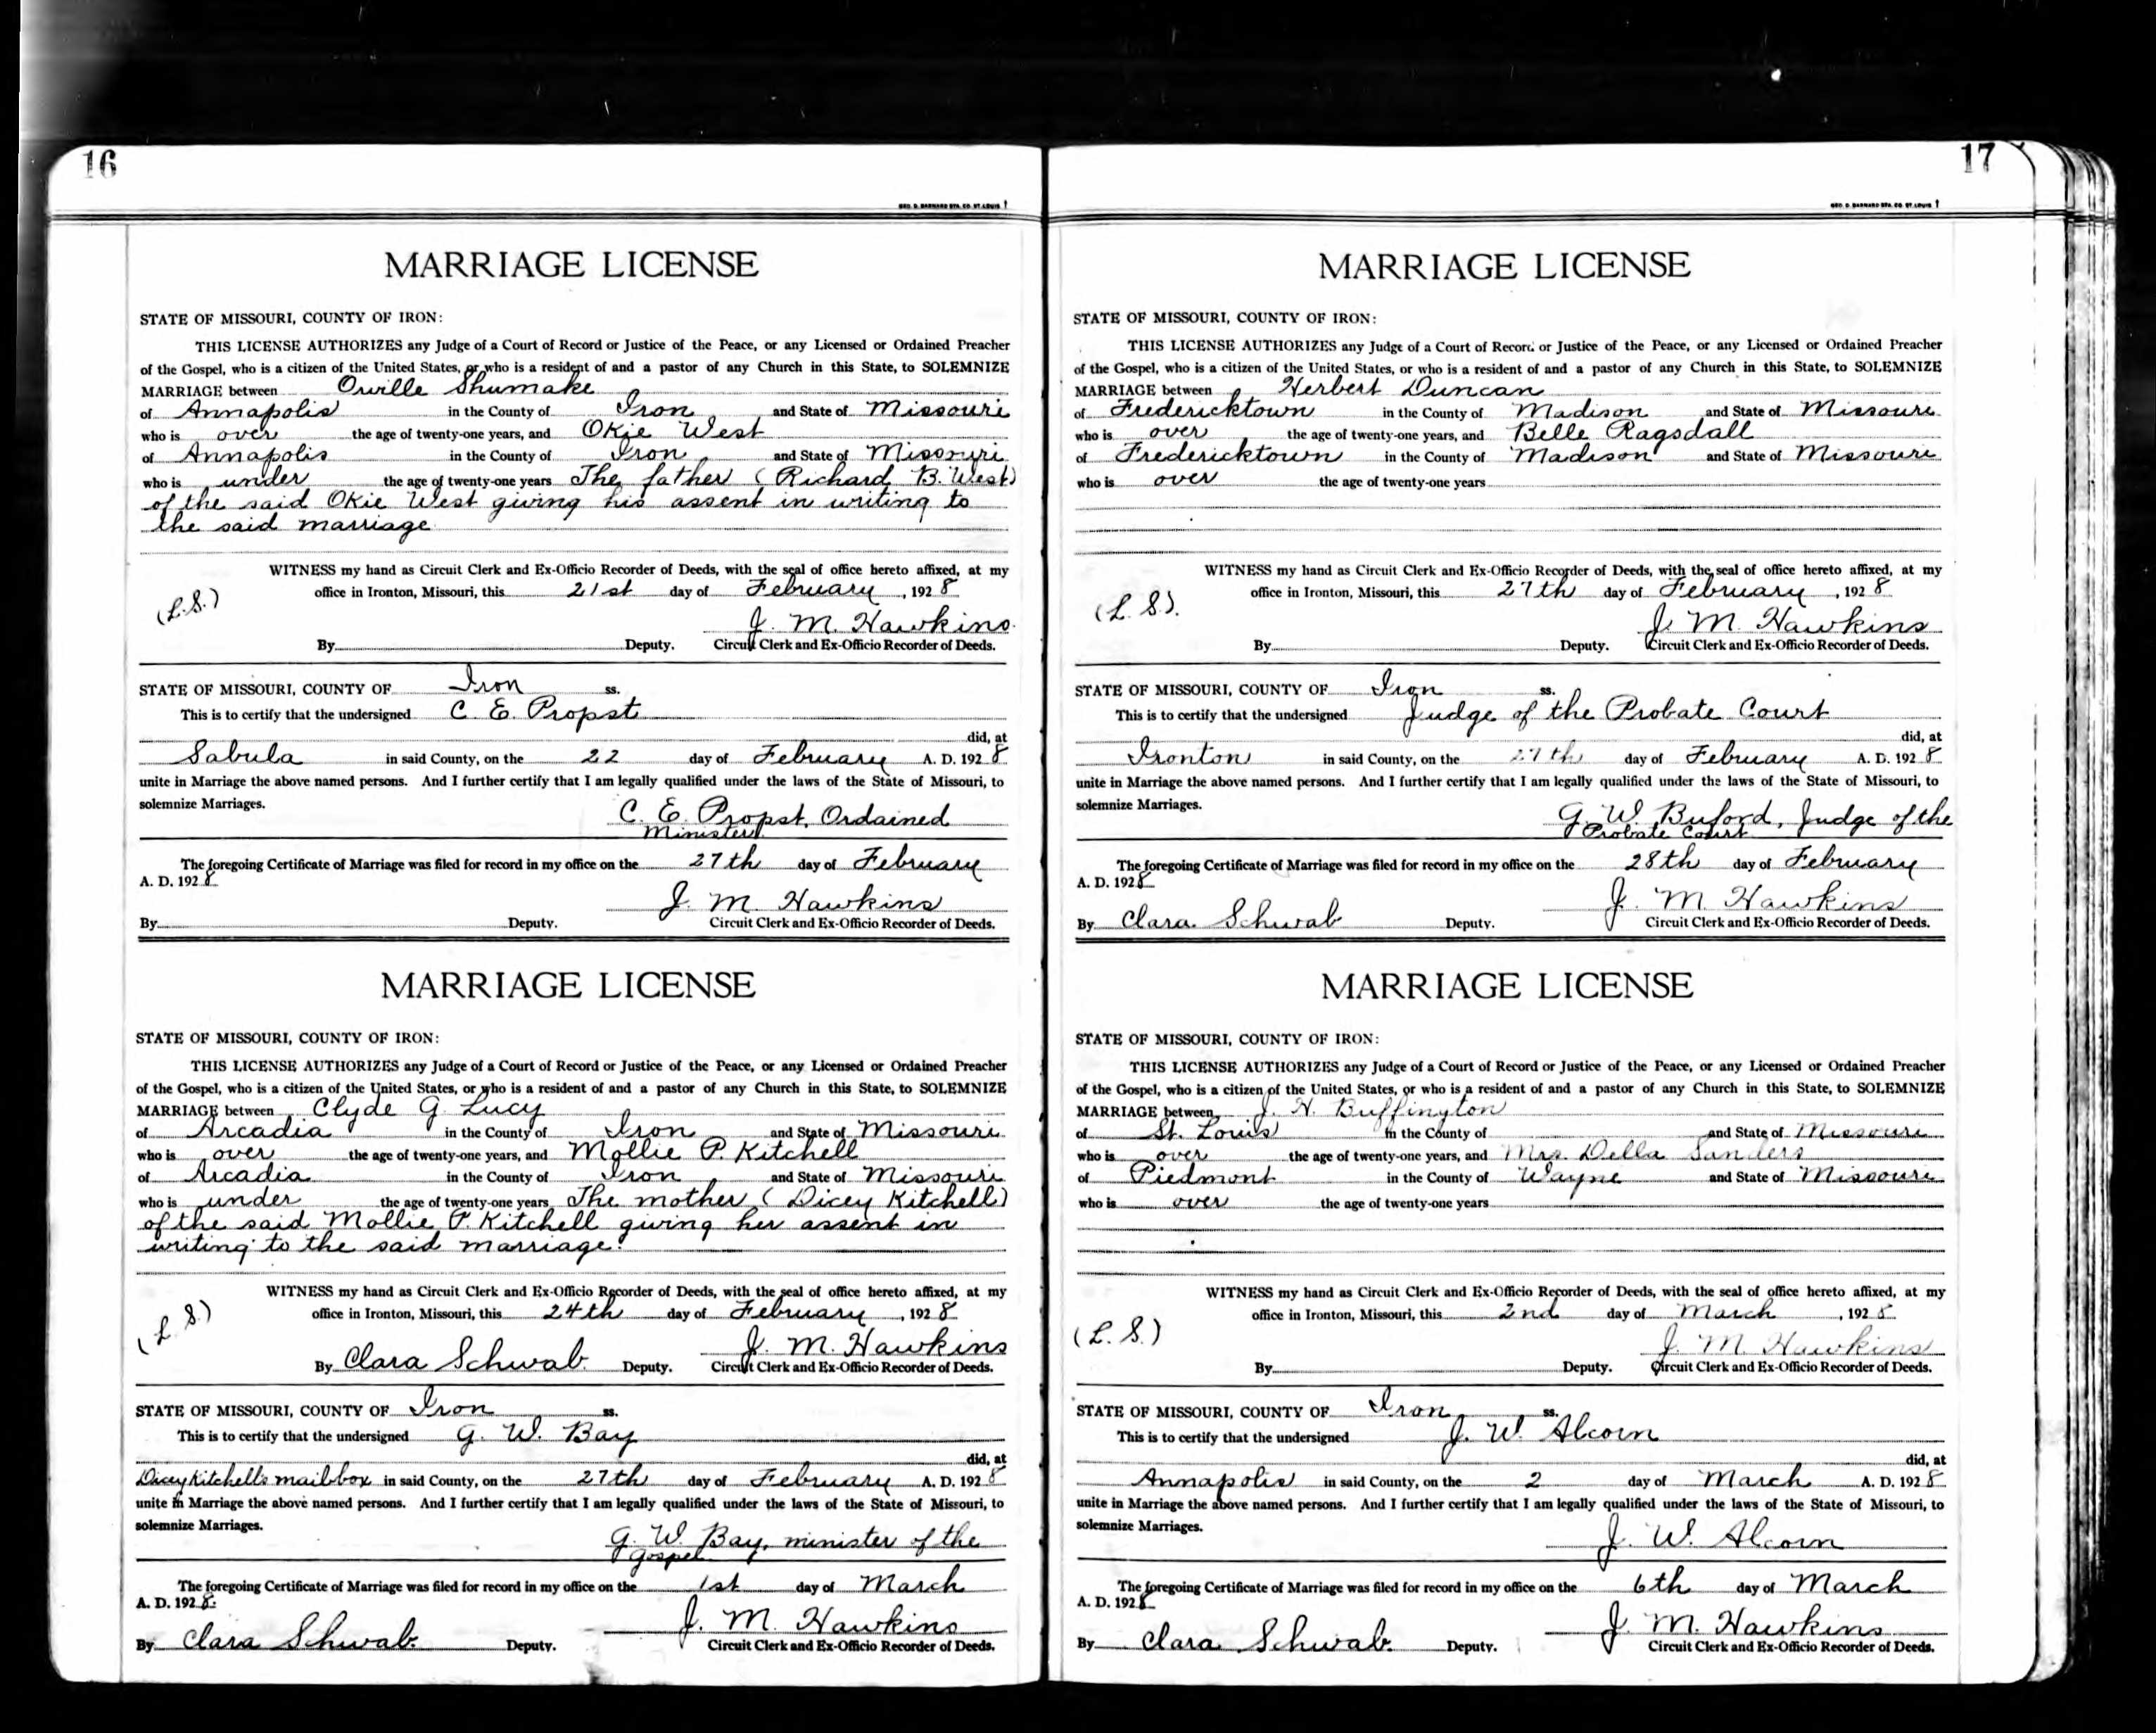 16
GEO. D. BARNARD STA. CO. ST. LOUIS
MARRIAGE LICENSE
STATE OF MISSOURI, COUNTY OF IRON:
THIS LICENSE AUTHORIZES any Judge of a Court of Record or Justice of the Peace, or any Licensed or Ordained Preacher
of the Gospel, who is a citizen of the United States, or who is a resident of and a pastor of any Church in this State, to SOLEMNIZE
MARRIAGE between Orville Shumake
of Annapolis in the County of Iron and State of Missouri
who is over the age of twenty-one years, and Okie West
of Annapolis in the County of Iron and State of Missouri
who is under the age of twenty-one years The father (Richard B. West)
of the said Okie West giving his assent in writing to
the said marriage
WITNESS my hand as Circuit Clerk and Ex-Officio Recorder of Deeds, with the seal of office hereto affixed, at my
(L.S.) office in Ironton, Missouri, this 21st day of February, 1928
J. M. Hawkins.
By Deputy. Circuit Clerk and Ex-Officio Recorder of Deeds.
STATE OF MISSOURI, COUNTY OF Iron ss.
This is to certify that the undersigned C. E. Propst
did, at
Sabula in said County, on the 22 day of February A. D. 1928
unite in Marriage the above named persons. And I further certify that I am legally qualified under the laws of the State of Missouri, to
solemnize Marriages.
C. E. Propst, Ordained
Minister
The foregoing Certificate of Marriage was filed for record in my office on the 27th day of February
A. D. 1928
J. M. Hawkins
By Deputy. Circuit Clerk and Ex-Officio Recorder of Deeds.
MARRIAGE LICENSE
STATE OF MISSOURI, COUNTY OF IRON:
THIS LICENSE AUTHORIZES any Judge of a Court of Record or Justice of the Peace, or any Licensed or Ordained Preacher
of the Gospel, who is a citizen of the United States, or who is a resident of and a pastor of any Church in this State, to SOLEMNIZE
MARRIAGE between Clyde G. Lucy
of Arcadia in the County of Iron and State of Missouri
who is over the age of twenty-one years, and Mollie P. Kitchell
of Arcadia in the County of Iron and State of Missouri
who is under the age of twenty-one years The mother (Dicey Kitchell)
of the said Mollie P. Kitchell giving her assent in
writing to the said marriage.
WITNESS my hand as Circuit Clerk and Ex-Officio Recorder of Deeds, with the seal of office hereto affixed, at my
(L. S.) office in Ironton, Missouri, this 24th day of February, 1928
J. M. Hawkins
By Clara Schwab Deputy. Circuit Clerk and Ex-Officio Recorder of Deeds.
STATE OF MISSOURI, COUNTY OF Iron ss.
This is to certify that the undersigned G. W. Bay
did, at
Dicey Kitchells mail box in said County, on the 27th day of February A. D. 1928
unite in Marriage the above named persons. And I further certify that I am legally qualified under the laws of the State of Missouri, to
solemnize Marriages.
G. W. Bay, minister of the
Gospel
The foregoing Certificate of Marriage was filed for record in my office on the 1st day of March
A. D. 1928.
J. M. Hawkins
By Clara Schwab. Deputy. Circuit Clerk and Ex-Officio Recorder of Deeds.
17
GEO. D. BARNARD STA. CO. ST. LOUIS
MARRIAGE LICENSE
STATE OF MISSOURI, COUNTY OF IRON:
THIS LICENSE AUTHORIZES any Judge of a Court of Record or Justice of the Peace, or any Licensed or Ordained Preacher
of the Gospel, who is a citizen of the United States, or who is a resident of and a pastor of any Church in this State, to SOLEMNIZE
MARRIAGE between Herbert Duncan
of Fredericktown in the County of Madison and State of Missouri
who is over the age of twenty-one years, and Belle Ragsdall
of Fredericktown in the County of Madison and State of Missouri
who is over the age of twenty-one years
WITNESS my hand as Circuit Clerk and Ex-Officio Recorder of Deeds, with the seal of office hereto affixed, at my
(L. S.). office in Ironton, Missouri, this 27th day of February, 1928
J. M. Hawkins
By Deputy. Circuit Clerk and Ex-Officio Recorder of Deeds.
STATE OF MISSOURI, COUNTY OF Iron ss.
This is to certify that the undersigned Judge of the Probate Court
did, at
Ironton in said County, on the 27th day of February A. D. 1928
unite in Marriage the above named persons. And I further certify that I am legally qualified under the laws of the State of Missouri, to
solemnize Marriages.
G. W. Buford, Judge of the
Probate Court
The foregoing Certificate of Marriage was filed for record in my office on the 28th day of February
A. D. 1928
J. M. Hawkins
By Clara Schwab Deputy. Circuit Clerk and Ex-Officio Recorder of Deeds.
MARRIAGE LICENSE
STATE OF MISSOURI, COUNTY OF IRON:
THIS LICENSE AUTHORIZES any Judge of a Court of Record or Justice of the Peace, or any Licensed or Ordained Preacher
of the Gospel, who is a citizen of the United States, or who is a resident of and a pastor of any Church in this State, to SOLEMNIZE
MARRIAGE between J. H. Buffington
of St. Louis in the County of and State of Missouri
who is over the age of twenty-one years, and Mrs. Della Sanders
of Piedmont in the County of Wayne and State of Missouri
who is over the age of twenty-one years
WITNESS my hand as Circuit Clerk and Ex-Officio Recorder of Deeds, with the seal of office hereto affixed, at my
(L. S.) office in Ironton, Missouri, this 2nd day of March, 1928
J. M. Hawkins
By Deputy. Circuit Clerk and Ex-Officio Recorder of Deeds.
STATE OF MISSOURI, COUNTY OF Iron ss.
This is to certify that the undersigned J. W. Alcorn
did, at
Annapolis in said County, on the 2 day of March A. D. 1928
unite in Marriage the above named persons. And I further certify that I am legally qualified under the laws of the State of Missouri, to
solemnize Marriages.
J. W. Alcorn
The foregoing Certificate of Marriage was filed for record in my office on the 6th day of March
A. D. 1928
J. M. Hawkins
By Clara Schwab. Deputy. Circuit Clerk and Ex-Officio Recorder of Deeds.